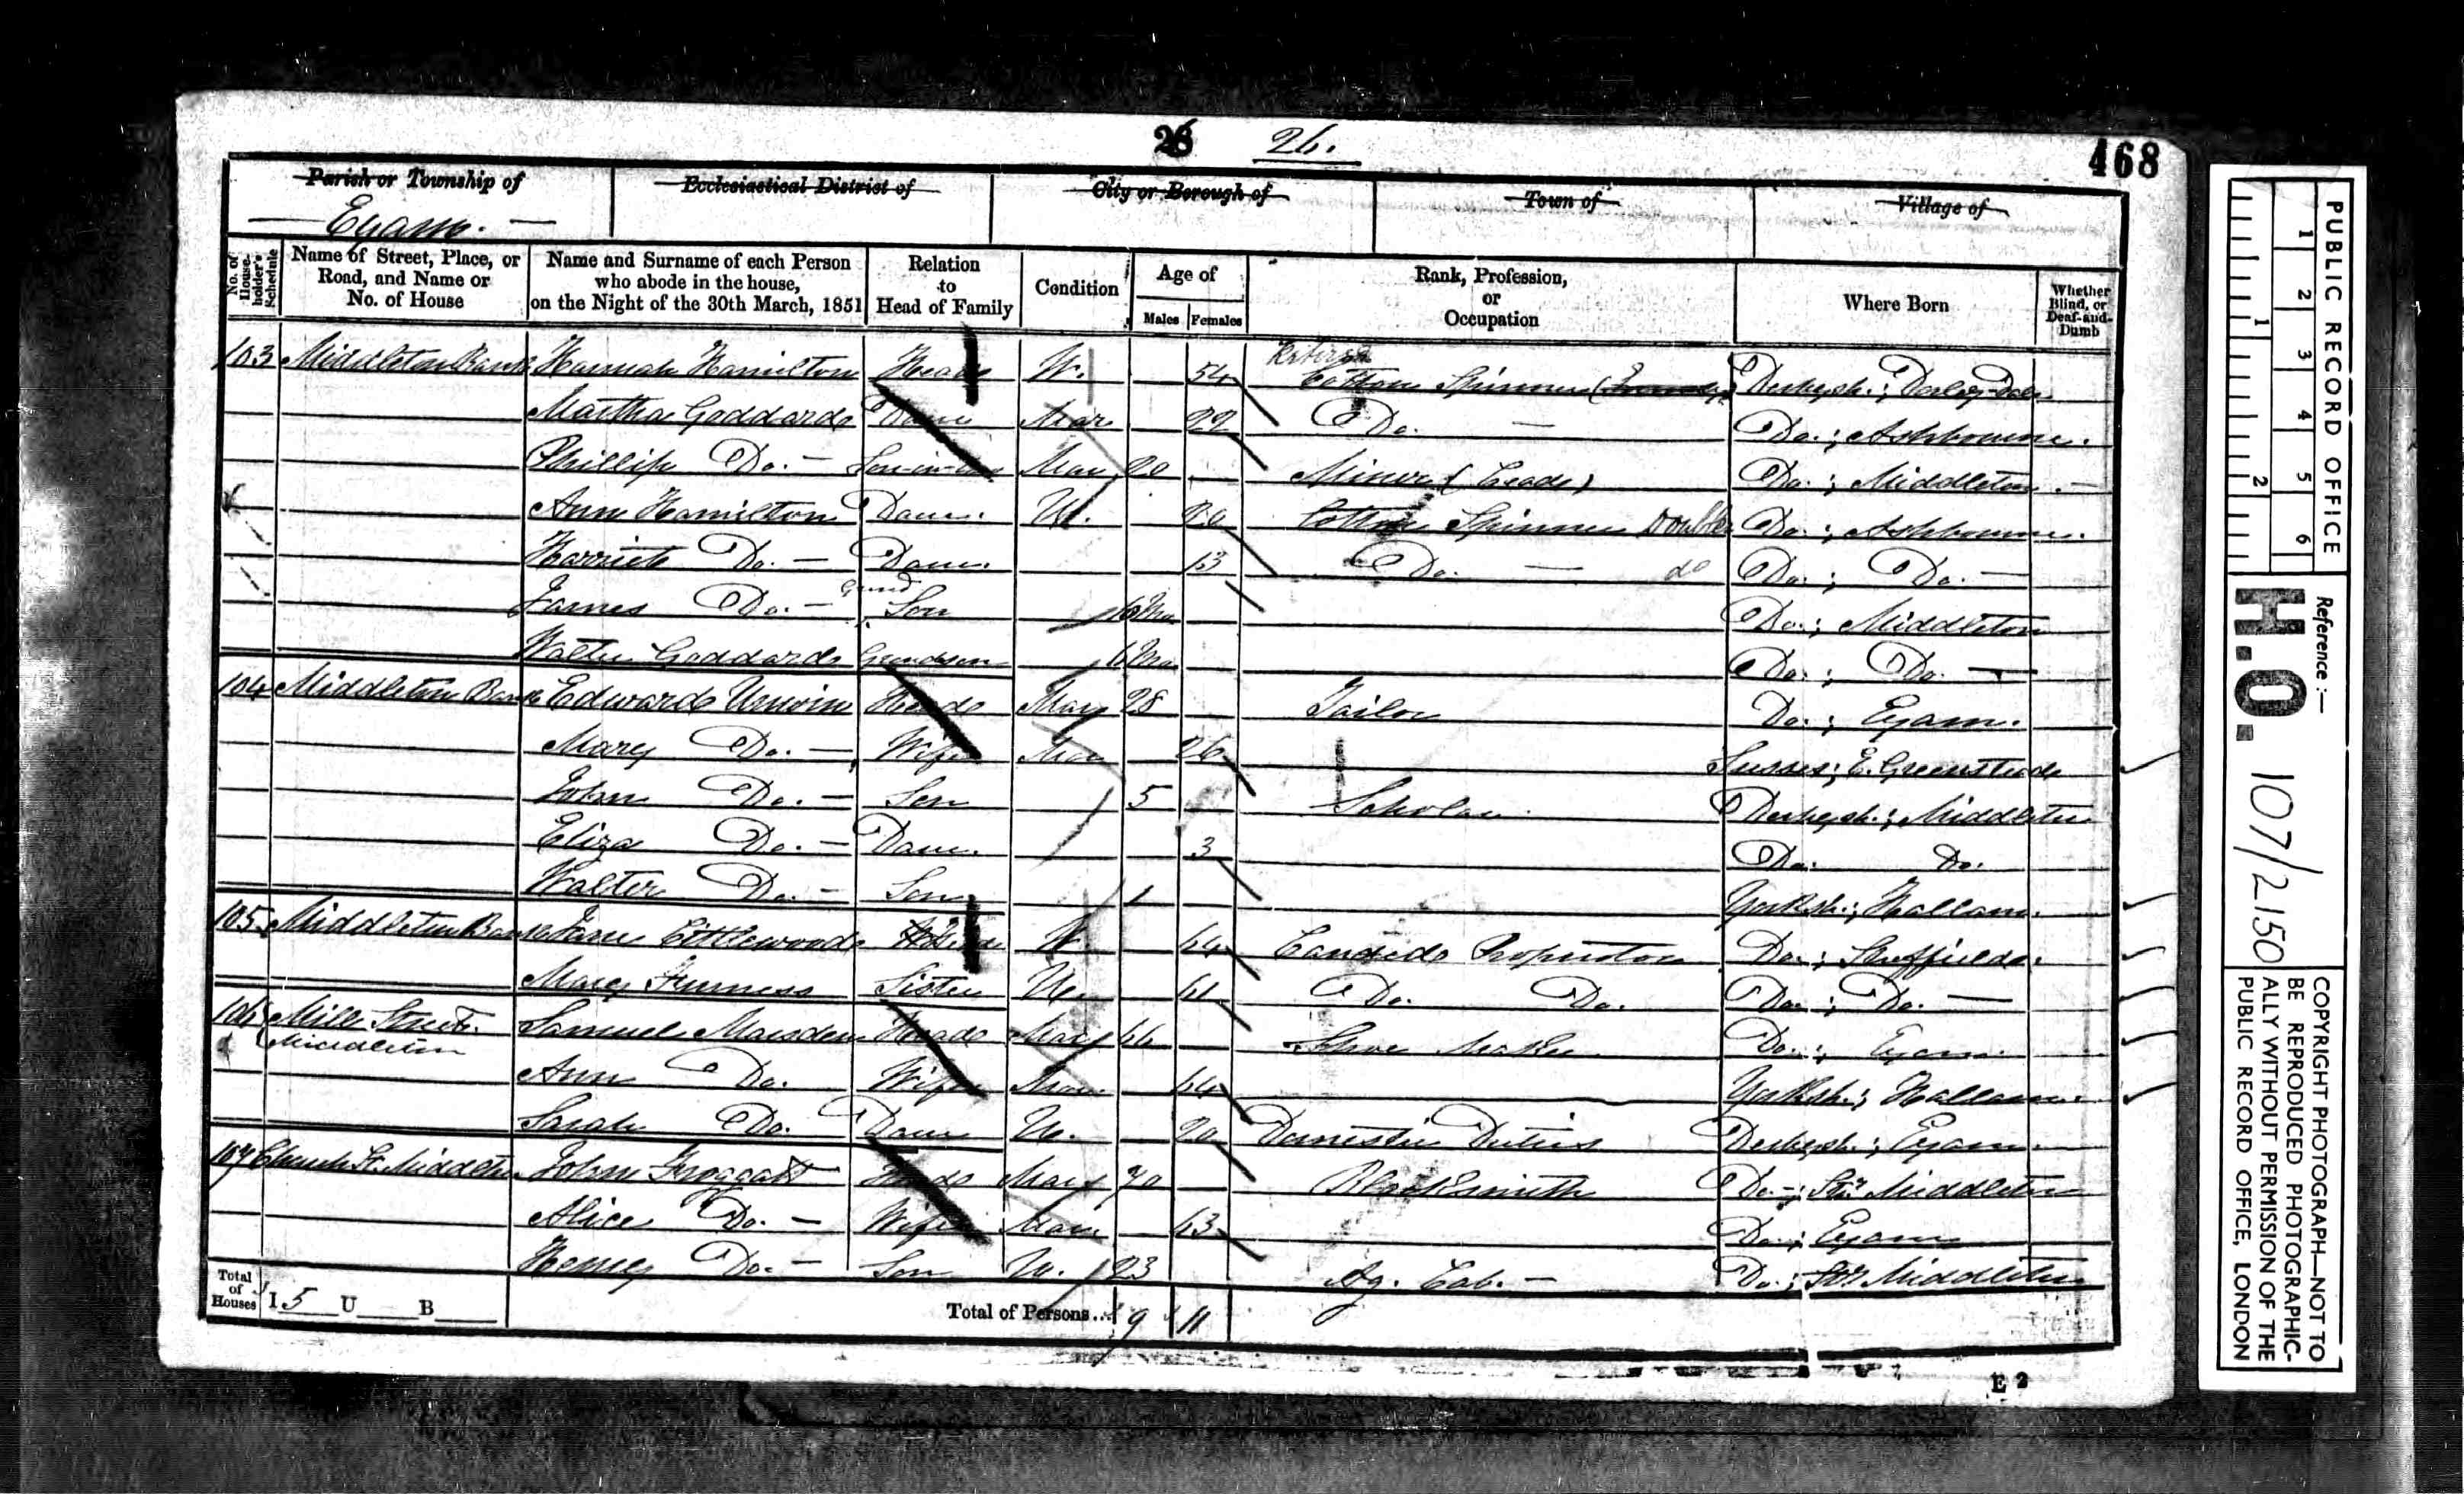 26 26.
468
Parish or Township of Ecclesiastical District of City or Borough of Town of Village of
Eyam.
No. of House-holder's Schedule
Name of Street, Place, or Road, and Name or No. of House
Name and Surname of each Person who abode in the house, on the Night of the 30th March, 1851
Relation to Head of Family
Condition
Age of
Males Females
Rank, Profession, or Occupation
Where Born
Whether Blind, or Deaf-and-Dumb
103 Middleton Bank Hannah Hamilton Head W. 54 Cotton Spinner Derbysh.; Darley Dale
Martha Goddard Daur Mar 22 Do. Do.; Ashbourne.
Phillip Do. Son-in-law Mar 20 Miner (Lead) Do.; Middleton.
Ann Hamilton Daur. U. 20 Cotton Spinner Doubler Do.; Ashbourne.
Harriet Do. Daur. 13 Do. do Do.; Do.
James Do. Grand Son Mo Do.; Middleton
Walter Goddard Grandson Mo Do.; Do.
104 Middleton Bank Edward Unwin Head Mar 28 Tailor Do.; Eyam.
Mary Do. Wife Mar 26 Sussex; E. Greenstead
John Do. Son 5 Scholar Derbysh.; Middleton
Eliza Do. Daur. 3 Do. Do.
Walter Do. Son 1 Yorksh.; Hallam.
105 Middleton Bank Jane Littlewood Head W 64 Landed Proprietor Do.; Sheffield.
Mary Furness Sister U. 61 Do. Do. Do.; Do.
106 Mill Street. Middleton Samuel Marsden Head Mar 66 Shoe Maker Do.; Eyam.
Ann Do. Wife Mar 64 Yorksh.; Hallam.
Sarah Do. Daur U. 20 Domestic Duties Derbysh.; Eyam.
107 Church St. Middleton John Froggatt Head Mar 70 Blacksmith Do.; Middleton
Alice Do. Wife Mar 63 Do.; Eyam
Henry Do. Son U. 23 Ag. Lab. Do.; Middleton
Total of Houses I 5 U B Total of Persons... 9 11
E 2
PUBLIC RECORD OFFICE
1 2 3 4 5 6
1 2
Reference :—
H.O. 107/2150
COPYRIGHT PHOTOGRAPH—NOT TO
BE REPRODUCED PHOTOGRAPHIC-
ALLY WITHOUT PERMISSION OF THE
PUBLIC RECORD OFFICE, LONDON